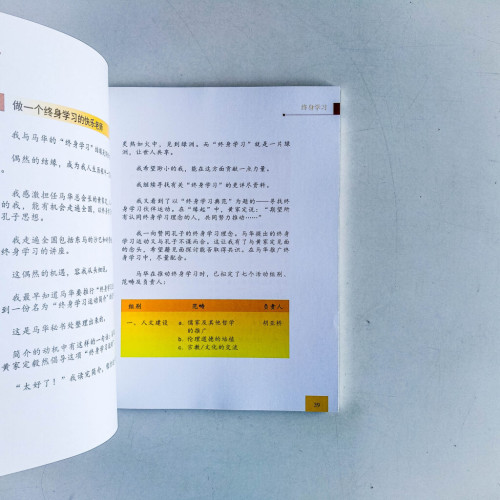 做一个终身学习的快乐老师
我与马华的“终身学习”
偶然的结缘，成为我人生
我感激担任马华总会长的黄家定
的我，能有机会走遍全国，以
孔子思想。
我走遍全国包括东马的沙巴和
终身学习的讲座。
这偶然的机遇，容我从长细说。
我最早知道马华要推行“终身
到一份名为“终身学习运动简介”
这是马华秘书处整理出来的。
简介的动机中有这样的一句话
黄家定毅然倡导这项“终身学习
“太好了！”我读完简介，
终身学习
更热如火中，见到绿洲。而“终身学习”就是一片绿
洲，让世人共享。
我希望渺小的我，能在这方面贡献一点力量。
我继续寻找有关“终身学习”的更详尽资料。
我又看到了以“终身学习典范”为题的——寻找终
身学习伙伴运动。在“缘起”中，黄家定说：“期望所
有认同终身学习理念的人，共同努力推动……”
我一向赞同孔子的终身学习理念。马华推出的终身
学习运动又与孔子不谋而合。这让我有了与黄家定见面
的念头，希望趁见面探讨能否取得共识，在马华推广终
身学习中，尽量配合。
马华在推动终身学习时，已拟定了七个活动组别、
范畴及负责人：
组别 范畴 负责人
一、人文建设 a. 儒家及其他哲学 胡亚桥
的推广
b. 伦理道德的培植
c. 宗教/文化的交流
39